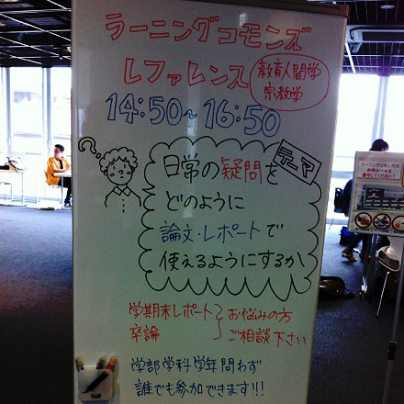 ラーニングコモンズ
レファレンス
教育人間学
宗教学
14:50~16:50
テーマ
?
日常の疑問を
どのように
論文・レポートで
使えるようにするか
学期末レポート
卒論
お悩みの方
ご相談下さい
学部学科学年問わず
誰でも参加できます!!!